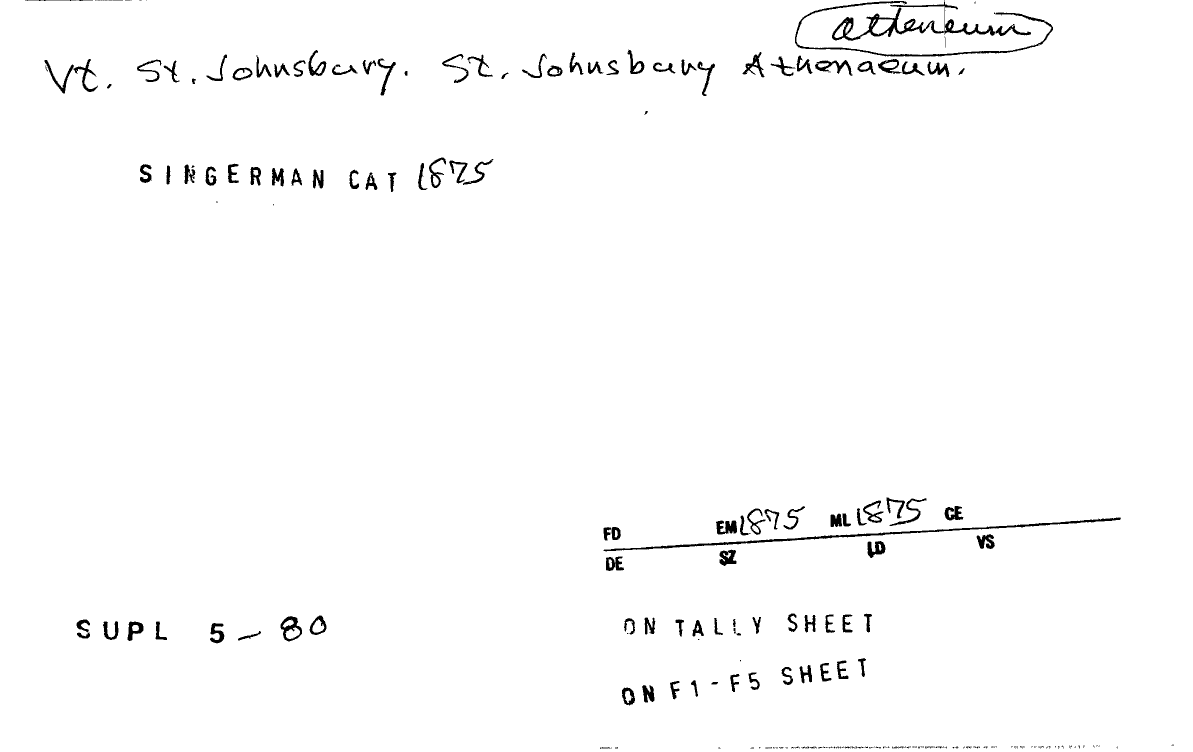 atheneum
Vt. St. Johnsbury. St. Johnsbury Athenaeum.
SINGERMAN CAT 1875
FD EM 1875 ML 1875 CE
DE SZ LD VS
SUPL 5-80
ON TALLY SHEET
ON F1-F5 SHEET